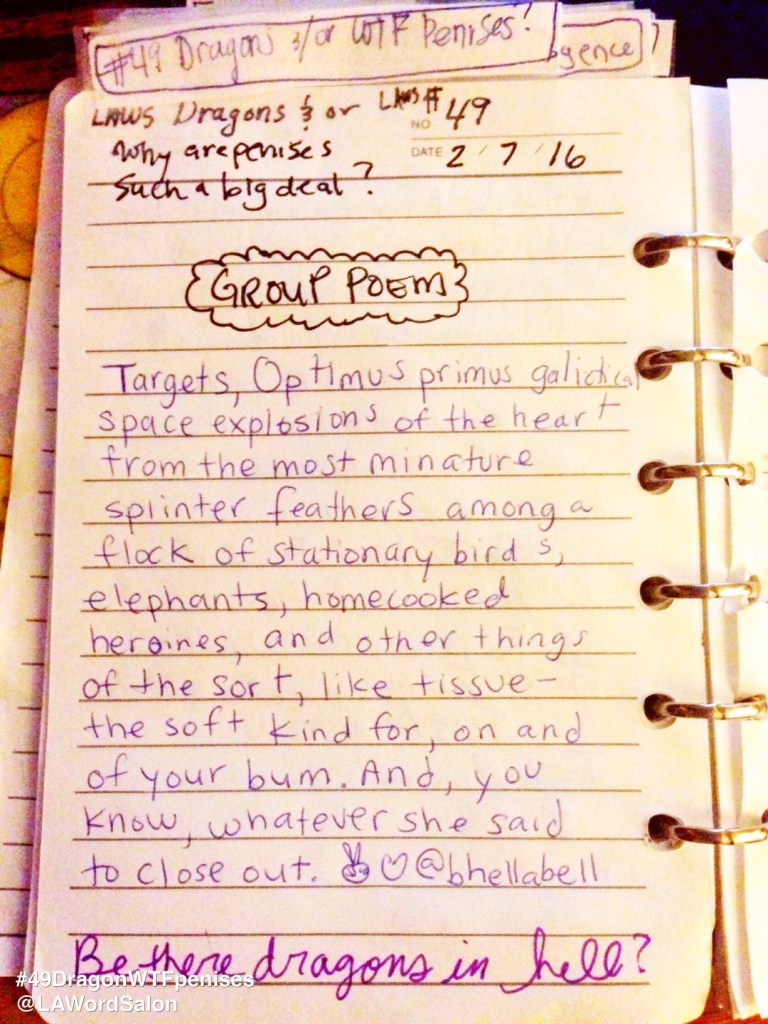 #49 Dragons &/or WTF Penises!
gence
LAWS Dragons & or LAWS# NO 49
Why are penises DATE 2/7/16
Such a big deal?
GROUP POEM
Targets, Optimus primus galictical
space explosions of the heart
from the most minature
splinter feathers among a
flock of stationary birds,
elephants, homecooked
heroines, and other things
of the sort, like tissue-
the soft kind for, on and
of your bum. And, you
know, whatever she said
to close out. ✌♡@bhellabell
Be there dragons in hell?
#49DragonWTFpenises
@LAWordSalon